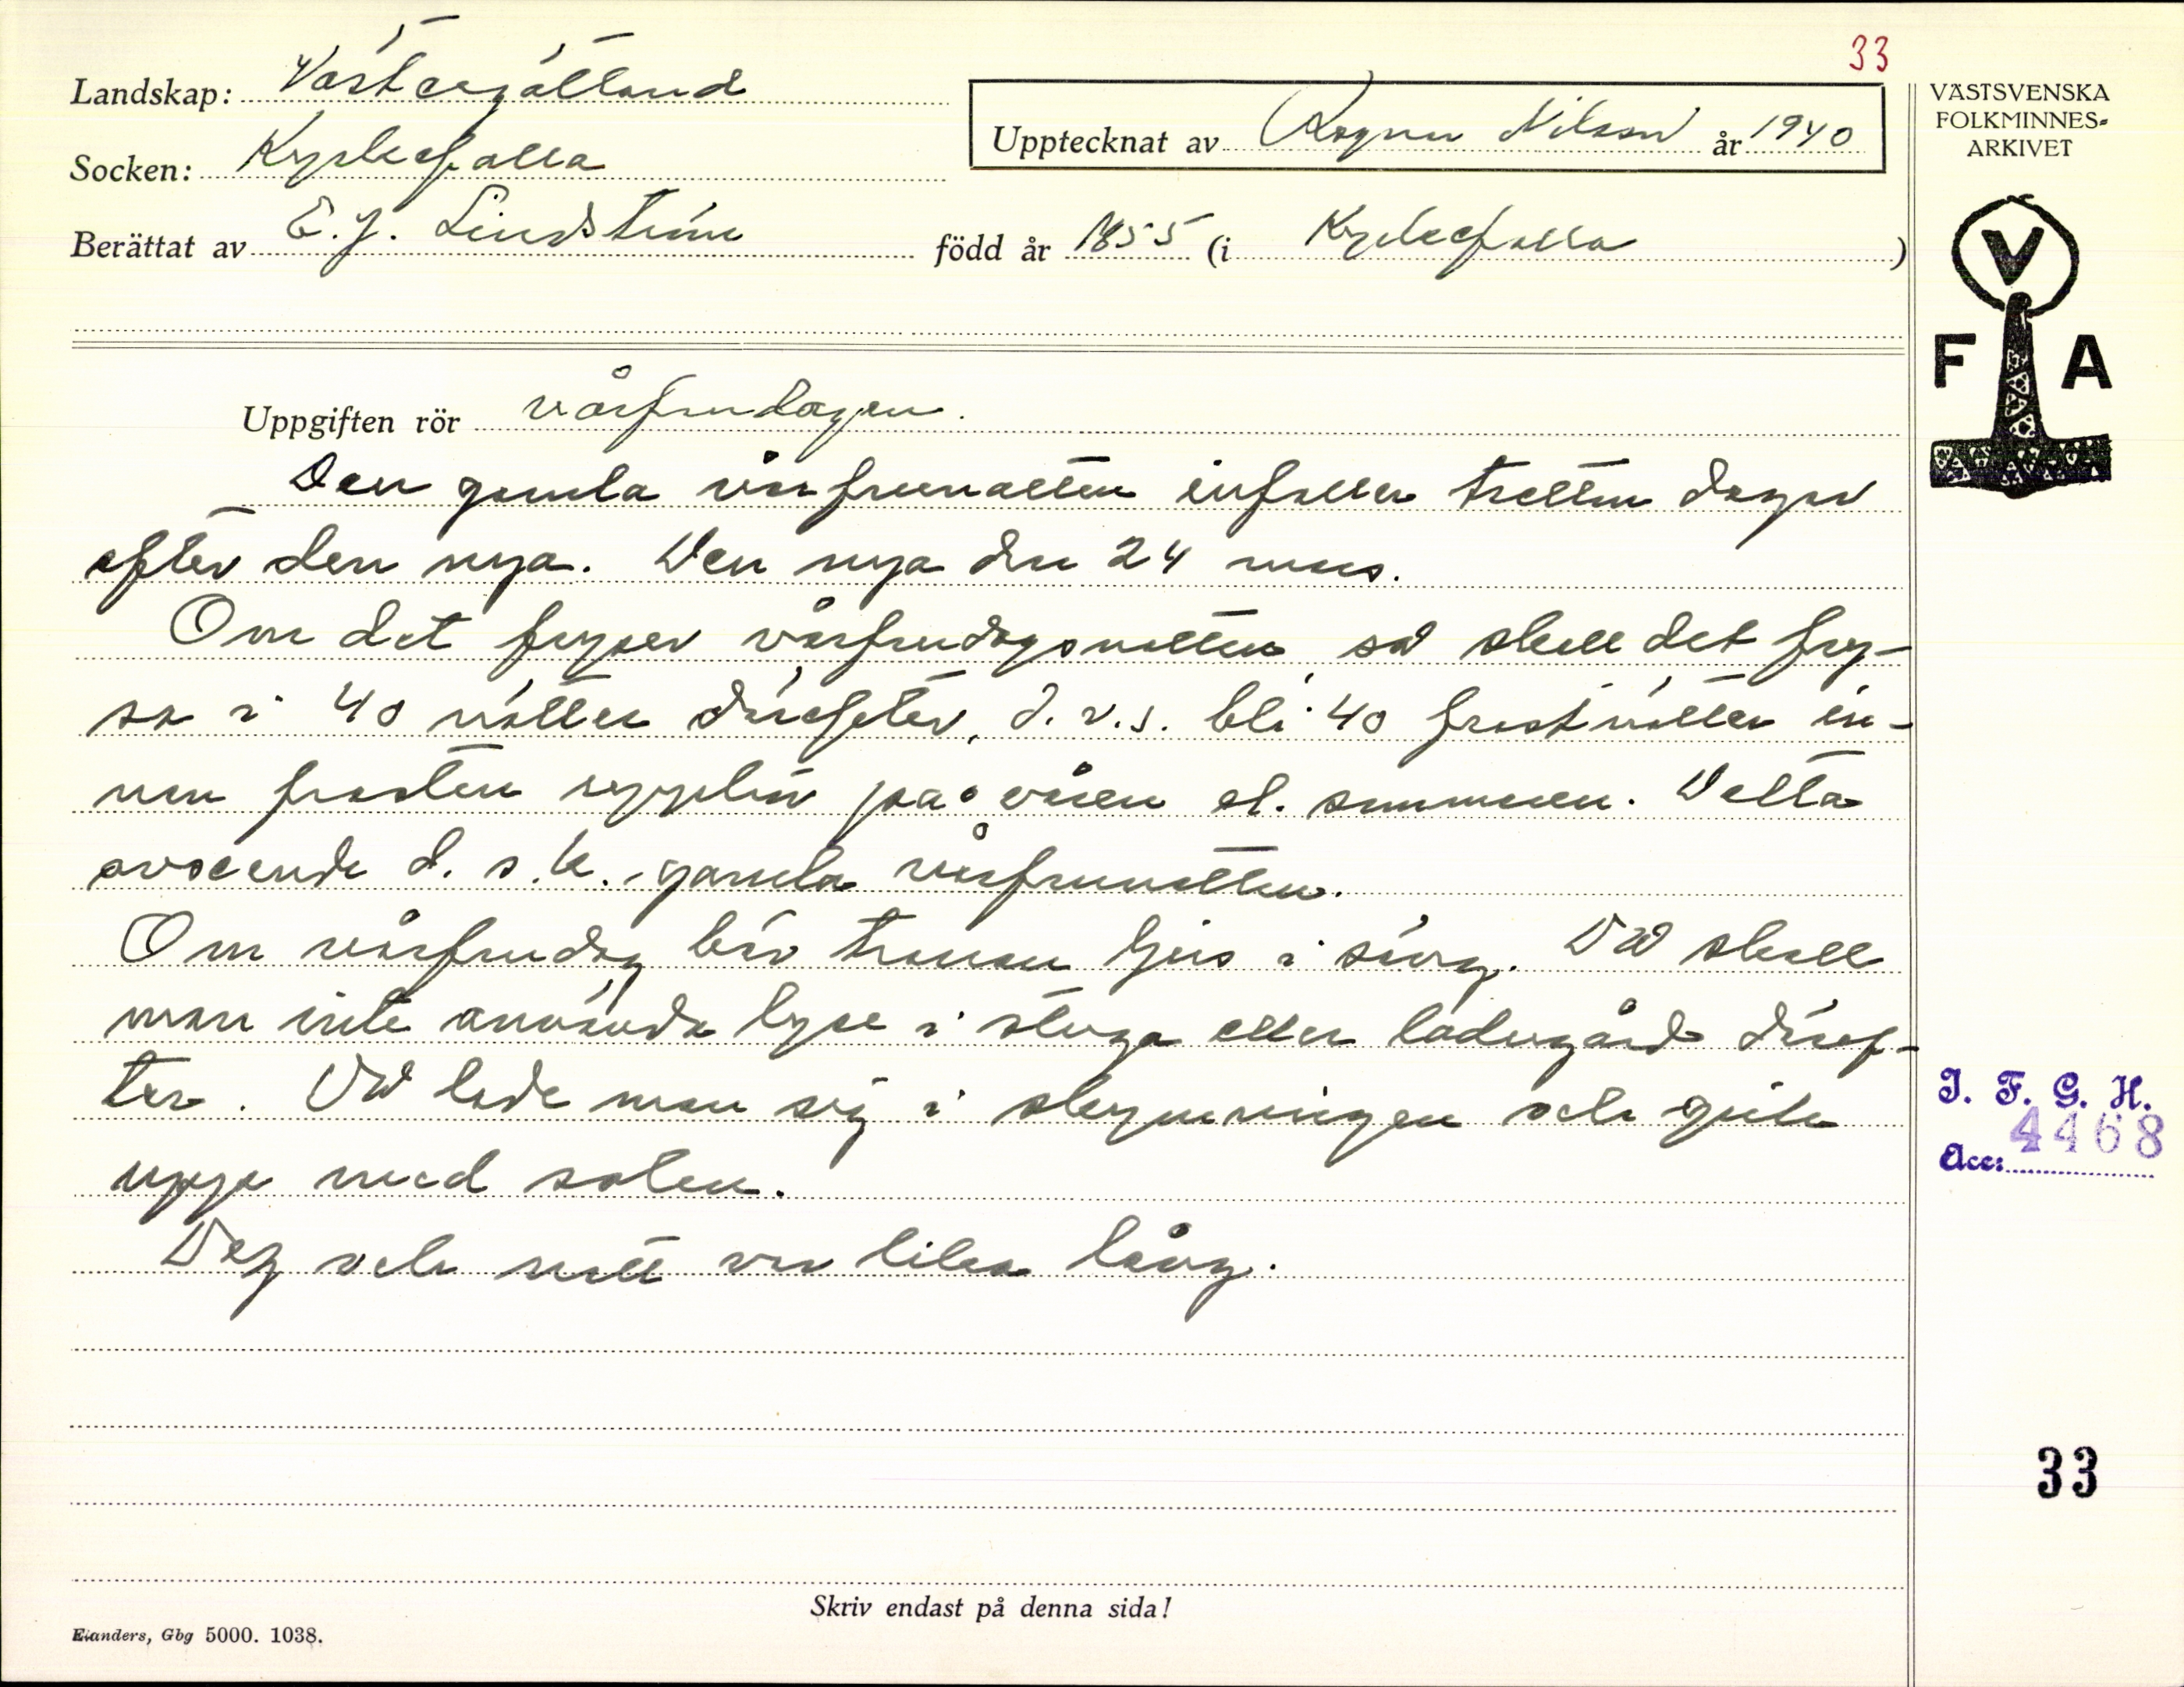 33
Landskap: Västergötland
Upptecknat av Ragnar Nilsson år 1940
Socken: Kyrkefalla
Berättat av E.J. Lindström född år 1855 (i Kyrkefalla)
VÄSTSVENSKA
FOLKMINNES=
ARKIVET
V
F A
Uppgiften rör vårfrudagen.
Den gamla vårfrunatten infaller tretton dagar
efter den nya. Den nya den 24 mars.
Om det fryser vårfrudagsnatten, så skall det fry-
sa i 40 nätter därefter, d.v.s. bli 40 frostnätter in-
nan frosten upphör på våren el. sommaren. Detta
avseende d. s.k. gamla vårfrunatten.
Om vårfrudag bär tranan ljus i säng. Då skall
man inte använda lyse i stuga eller ladugård däref-
ter. Då lade man sig i skymningen och gick
upp med solen.
Dag och natt var lika lång.
I. F. G. H.
Acc: 4468
33
Skriv endast på denna sida!
Elanders, Gbg 5000. 1038.